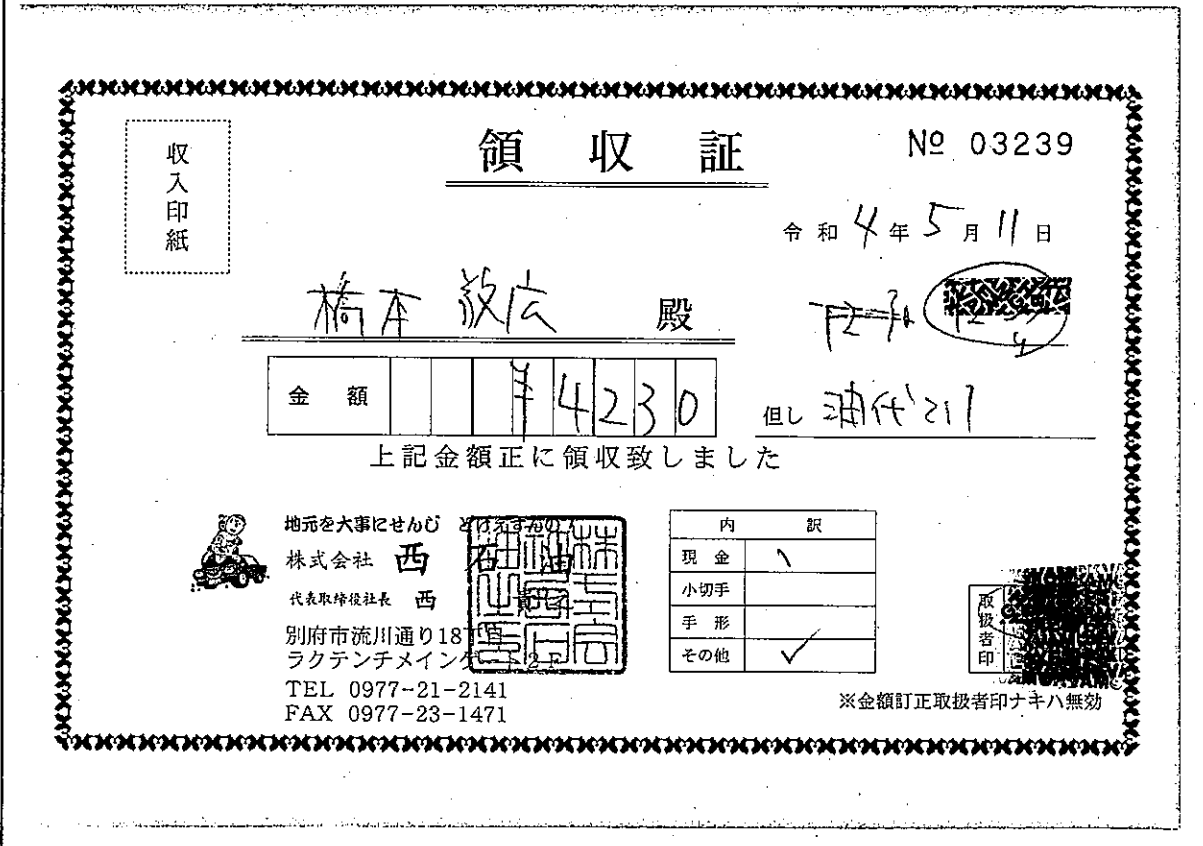 収入印紙
領収証
№ 03239
令和 4年 5月 11日
橋本 敬広 殿
金額 ¥4230
但し 油代として
上記金額正に領収致しました
地元を大事にせんじ どげえすんの!
株式会社 西石油
代表取締役社長 西
別府市流川通り18丁目
ラクテンチメインゲート2F
TEL 0977-21-2141
FAX 0977-23-1471
内訳
現金
小切手
手形
その他 ✓
取扱者印
※金額訂正取扱者印ナキハ無効